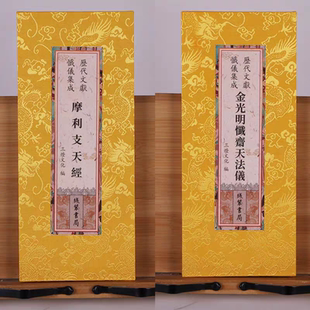 歷代文獻
懺儀集成
摩利支天經
三德文化 編
线装書局
歷代文獻
懺儀集成
金光明懺齋天法儀
三德文化 編
线装書局